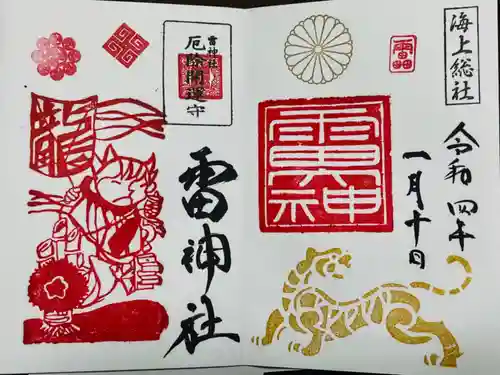 海上総社
令和四年
一月十日
雷神
雷神社
厄除開運守
雷神社
龍